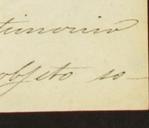 timonio
objeto so-